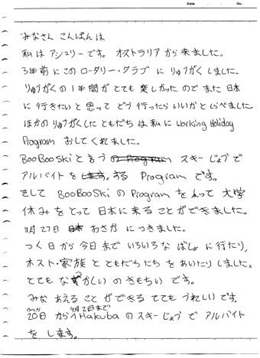 みなさん こんばんは
私は アシュリーです。 オストラリア から 来ました。
3年前に この ローダリー・クラブ に りゅうがくしました。
りゅうがくの 1年間が とても 楽しかったの で また 日本
に 行きたい と 思って どう 行ったら いいか と しらべました。
ほかの りゅうがくした ともだち は 私 に Working Holiday
Program おしてくれました。
BooBooSki と ろう スキーじょぶ で
アルバイト を する Program です。
そして BooBooSki の Program をとって 大学
休み を とって 日本に 来る ことが できました。
11月 27日 あさか に つきました。
つく日 から 今日まで いろいろな ばしょ に 行たり、
ホスト・家族 と ともだちたち を あいたり しました。
とても なつかしい の きもち です。
みな あえる こと が できる とても うれしい です。
20日 から 2月2日まで Hakuba の スキーじょぶ で アルバイト
を します。